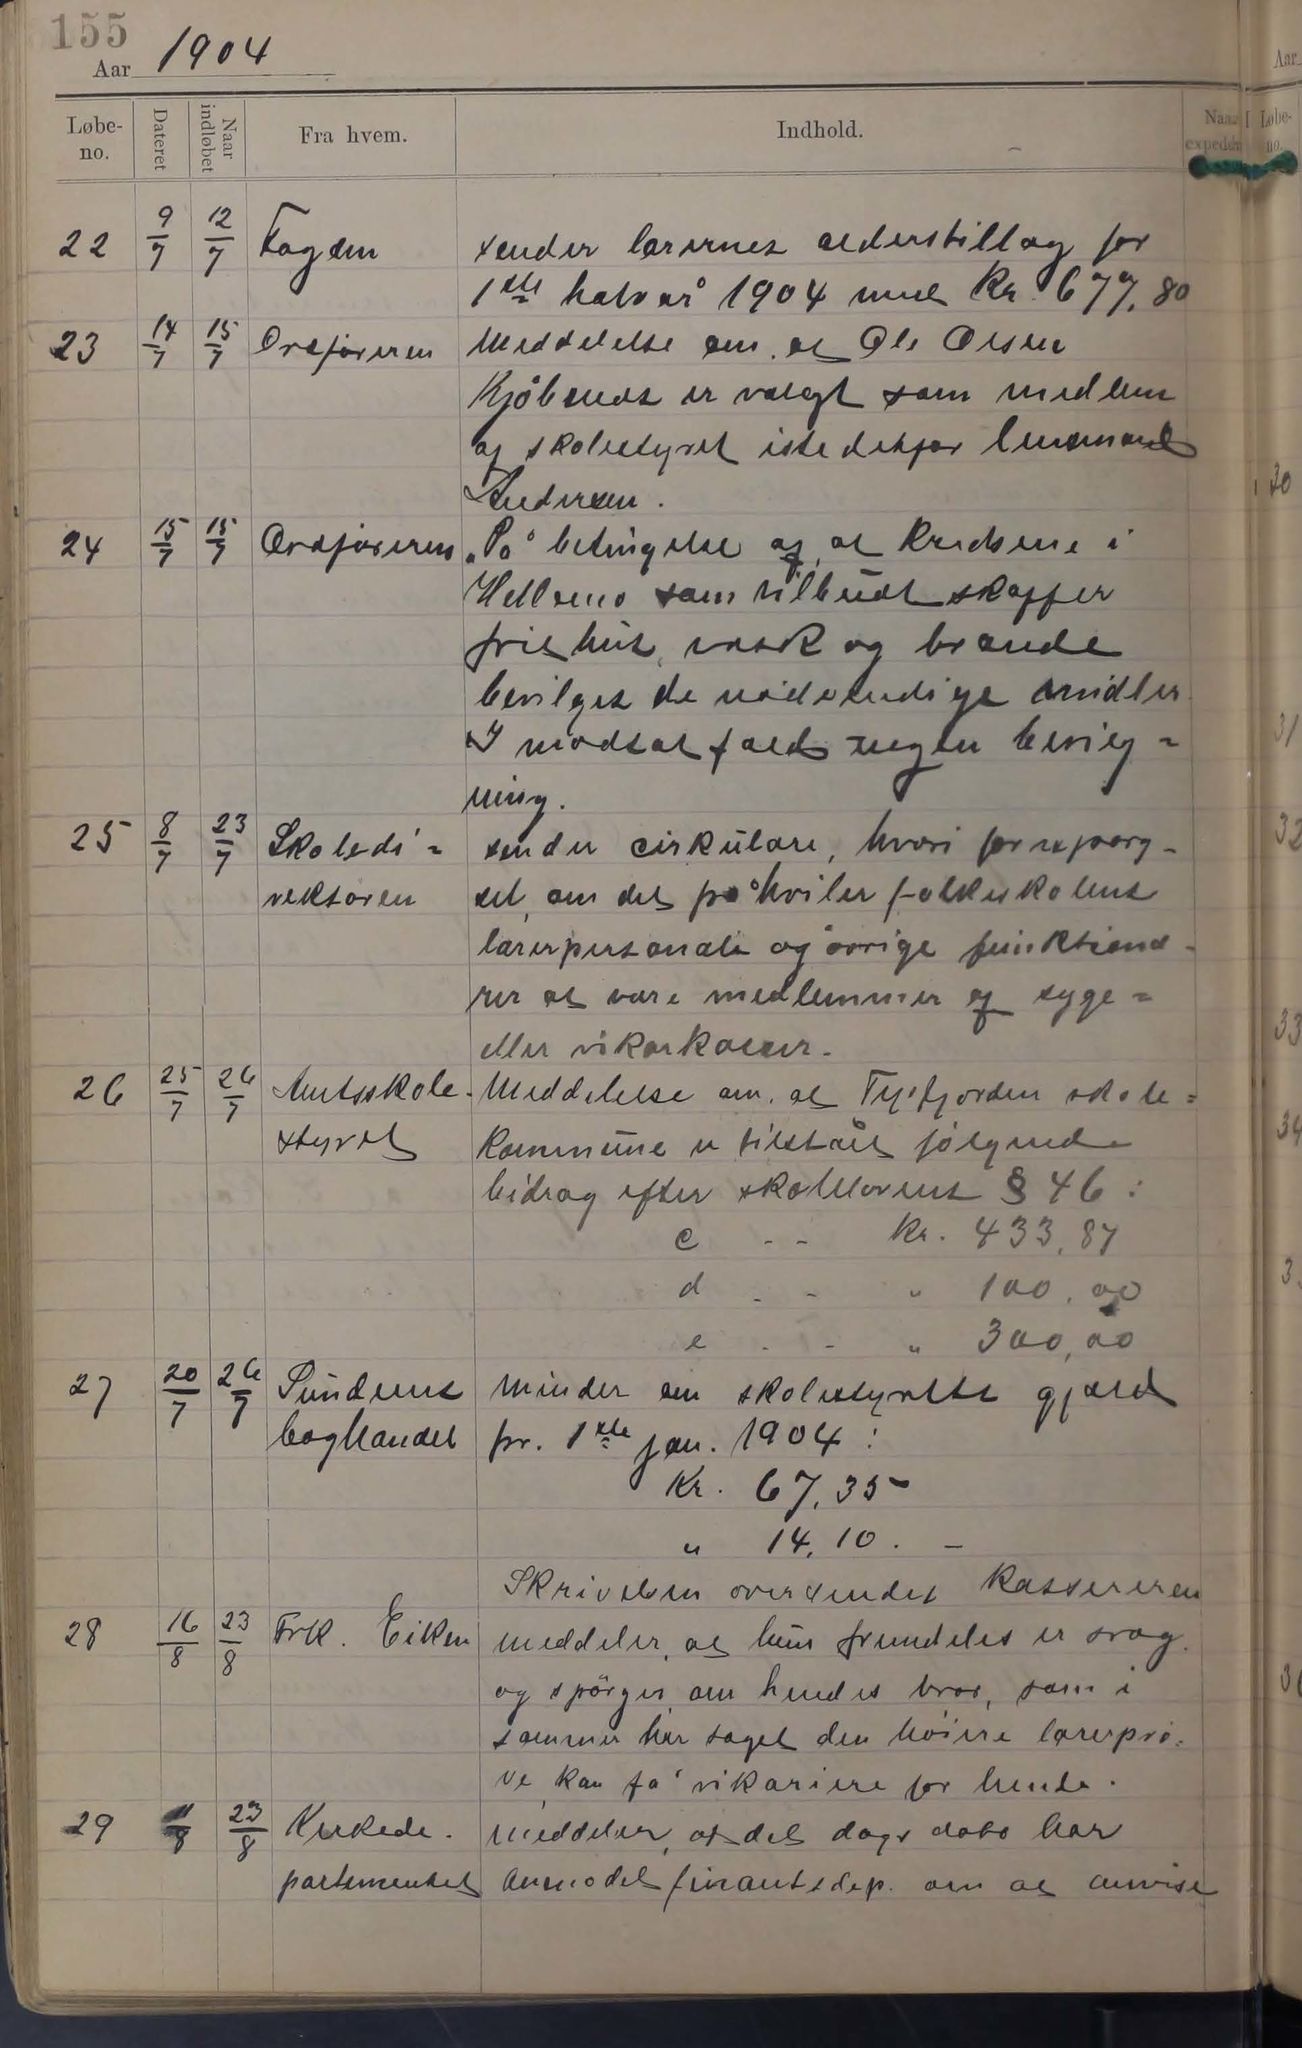 155
Aar 1904
Løbe-no. Dateret Naar indløbet Fra hvem. Indhold. Naar expedeh
22 9/7 12/7 Fogden sender lærernes alderstillæg for
1ste halvår 1904 med Kr. 677,80
23 14/7 15/7 Ordføreren Meddelelse om, at Ole Olsen
Kjöbnes er valgt som medlem
af skolestyret istedetfor lensmand
Andersen.
24 15/7 15/7 Ordføreren „På betingelse af, at Kredsene i
Hellemo som tilbudt skaffer
frit hus, vask og brænde
bevilges de nödvendige midler
I modsat fald ingen bevilg=
ning.
25 8/7 23/7 Skoledi= sender cirkulære, hvori forespörg-
rektören set, om det påhviler folkeskolens
lærerpersonale og övrige funktionæ-
rer at være medlemmer af syge=
eller vikarkasser.
26 25/7 26/7 Amtsskole- Meddelelse om, at Tysfjorden skole=
styret kommune er tilstået fölgende
bidrag efter skolelovens § 46:
c - - Kr. 433,87
d - - " 100,00
e - - " 300,00
27 20/7 26/7 Sundens minder om skolestyrets gjæld
boghandel pr. 1ste jan. 1904:
Kr. 67,35
" 14,10. -
Skrivelsen oversendes Kassereren
28 16/8 23/8 Frk. Eiken meddeler, at hun fremdeles er svag
og spörger, om hendes bror, som i
sommer har taget den höiere lærerprö=
ve, kan få vikariere for hende.
29 11/8 23/8 Kirkede- meddeler, at det dags dato har
partementet anmodet finantsdep. om at anvise
Aar
Løbe-no.
30
31
32
33
34